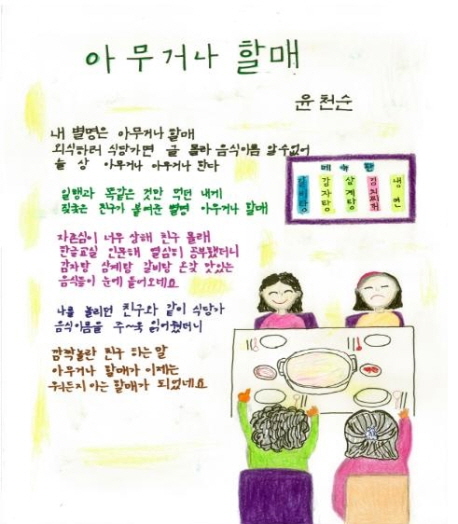 아무거나 할매
윤천순
내 별명은 아무거나 할매
외식하러 식당가면 글 몰라 음식이름 알수없어
늘 상 아무거나 아무거나 한다
일행과 똑같은 것만 먹던 내게
짖궂은 친구가 붙여준 별명 아무거나 할매
자존심이 너무 상해 친구 몰래
한글교실 인문해 열심히 공부했더니
감자탕 삼계탕 갈비탕 온갖 맛있는
음식들이 눈에 들어오네요
나를 놀리던 친구와 같이 식당가
음식이름을 주~욱 읽어줬더니
깜짝놀란 친구 하는 말
아무거나 할매가 이제는
뭐든지 아는 할매가 되었네요
메뉴판
갈비탕
감자탕
삼계탕
김치찌개
냉면